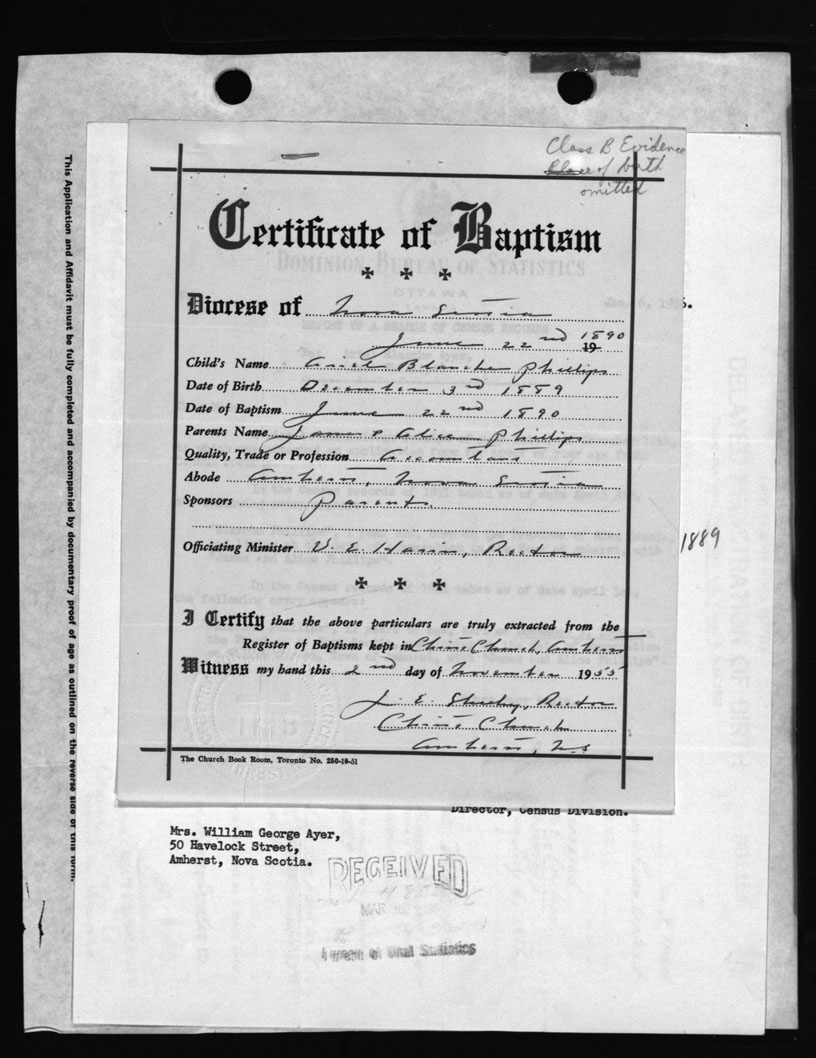 Class B Evidence
Place of birth
omitted
Certificate of Baptism
DOMINION BUREAU OF STATISTICS
OTTAWA
REPORT OF A SEARCH OF CENSUS RECORDS
6, 1956.
Diocese of Nova Scotia
June 22nd 1890
19
Child's Name Blanche Phillips
Date of Birth December 3rd 1889
Date of Baptism June 22nd 1890
Parents Name James & Alice Phillips
Quality, Trade or Profession Accountant
Abode Amherst, Nova Scotia
Sponsors Parents.
Officiating Minister V. E. Harris, Rector
1889
I Certify that the above particulars are truly extracted from the
Register of Baptisms kept in Christ Church, Amherst
Witness my hand this 2nd day of November 1955
J. E. Rector
Christ Church
Amherst, N.S
The Church Book Room, Toronto No. 250-10-51
Director, Census Division.
Mrs. William George Ayer,
50 Havelock Street,
Amherst, Nova Scotia.
RECEIVED
MAR
Bureau of Vital Statistics
This Application and Affidavit must be fully completed and accompanied by documentary proof of age as outlined on the reverse side of this form.